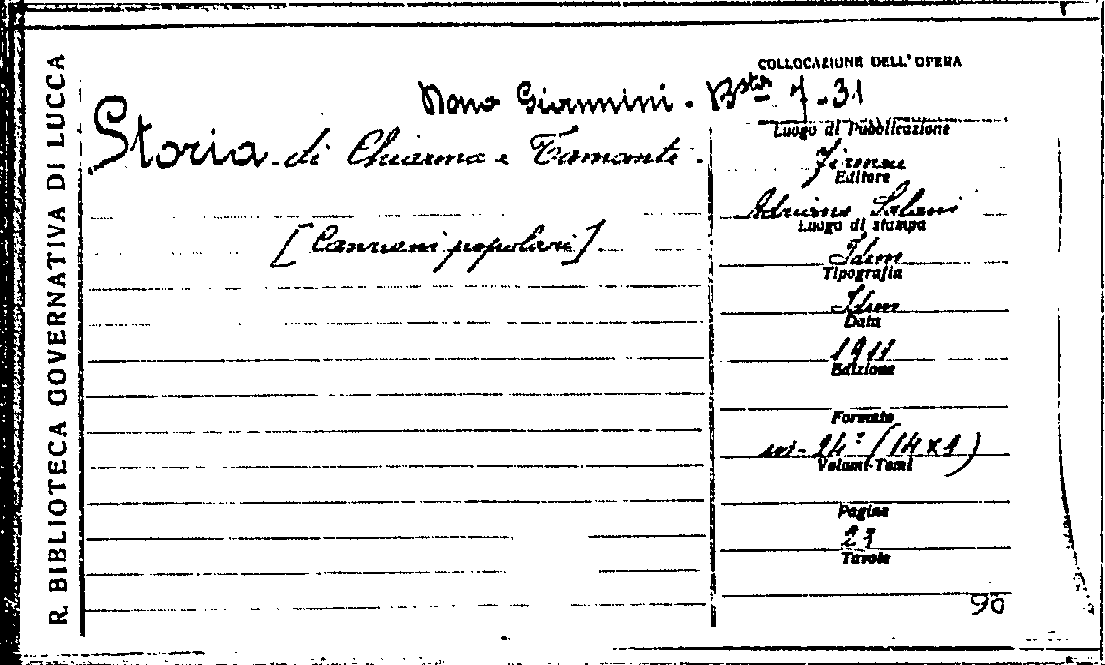 R. BIBLIOTECA GOVERNATIVA DI LUCCA
COLLOCAZIONE DELL' OPERA
Giannini. 7.31
Storia di Chiarina e Tamante.
[Canzoni popolari]
Luogo di Pubblicazione
Firenze
Editore
Adriano Salani
Luogo di stampa
Idem
Tipografia
Idem
Data
1911
Edizione
Formato
in-24° (14x9)
Volumi-Tomi
Pagine
23
Tavole
90